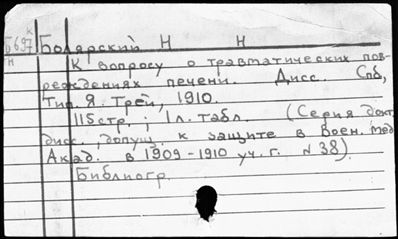 к
Б697 Болярский Н Н
н К вопросу о травматических пов-
реждениях печени. Дисс. Спб,
Тип. Я. Трей, 1910.
115 стр.; 1 л. табл. (Серия докт.
дисс., допущ. к защите в Воен. мед.
Акад. в 1909-1910 уч. г. №38).
Библиогр.